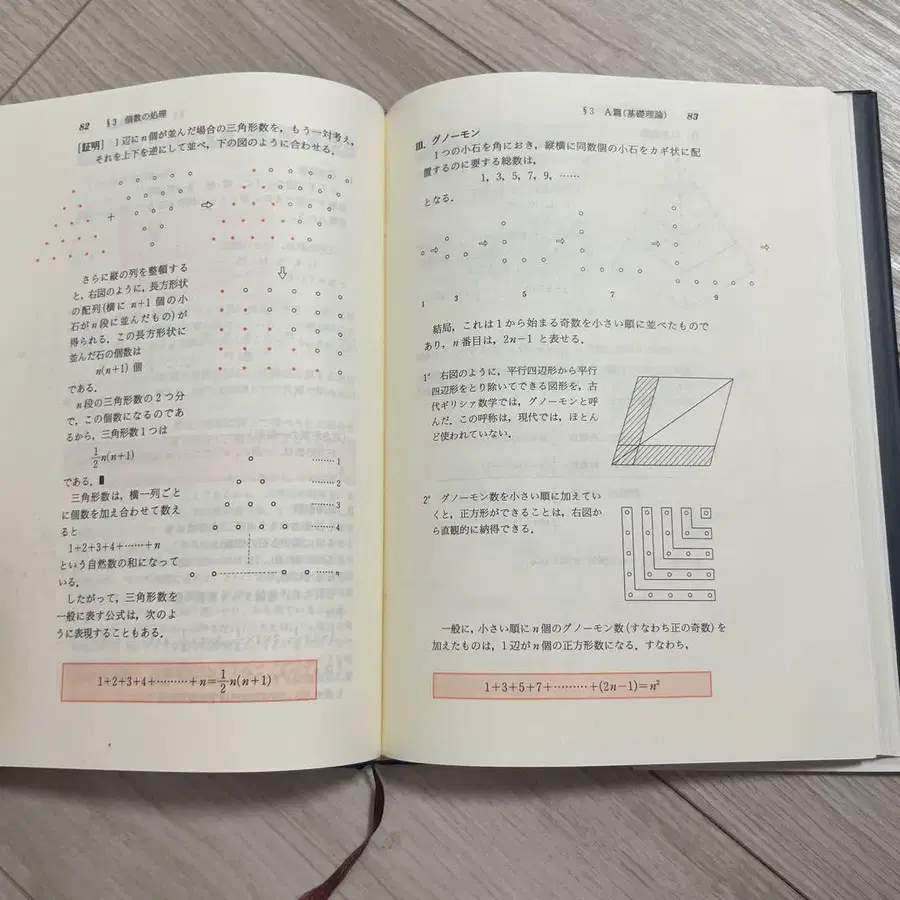 82 §3 個数の処理
[証明] 1辺にn個が並んだ場合の三角形数を，もう一対考え，
それを上下を逆にして並べ，下の図のように合わせる．
+ ⇨
⇩
さらに縦の列を整頓する
と，右図のように，長方形状
の配列(横に n+1 個の小
石がn段に並んだもの)が
得られる．この長方形状に
並んだ石の個数は
n(n+1) 個
である．
n段の三角形数の2つ分
で，この個数になるのであ
るから，三角形数1つは
1/2 n(n+1)
である．∎
………1
………2
………3
………4
………n
三角形数は，横一列ごと
に個数を加え合わせて数え
ると
1+2+3+4+……+n
という自然数の和になって
いる．
したがって，三角形数を
一般に表す公式は，次のよ
うに表現することもある．
1+2+3+4+………+n=1/2 n(n+1)
§3 A篇(基礎理論) 83
III. グノーモン
1つの小石を角におき，縦横に同数個の小石をカギ状に配
置するのに要する総数は，
1, 3, 5, 7, 9, ……
となる．
⇨ ⇨ ⇨ ⇨ ⇨
1 3 5 7 9
結局，これは1から始まる奇数を小さい順に並べたもので
あり，n番目は，2n−1 と表せる．
1° 右図のように，平行四辺形から平行
四辺形をとり除いてできる図形を，古
代ギリシァ数学では，グノーモンと呼
んだ．この呼称は，現代では，ほとん
ど使われていない．
2° グノーモン数を小さい順に加えてい
くと，正方形ができることは，右図か
ら直観的に納得できる．
一般に，小さい順にn個のグノーモン数(すなわち正の奇数)を
加えたものは，1辺がn個の正方形数になる．すなわち，
1+3+5+7+………+(2n−1)=n²